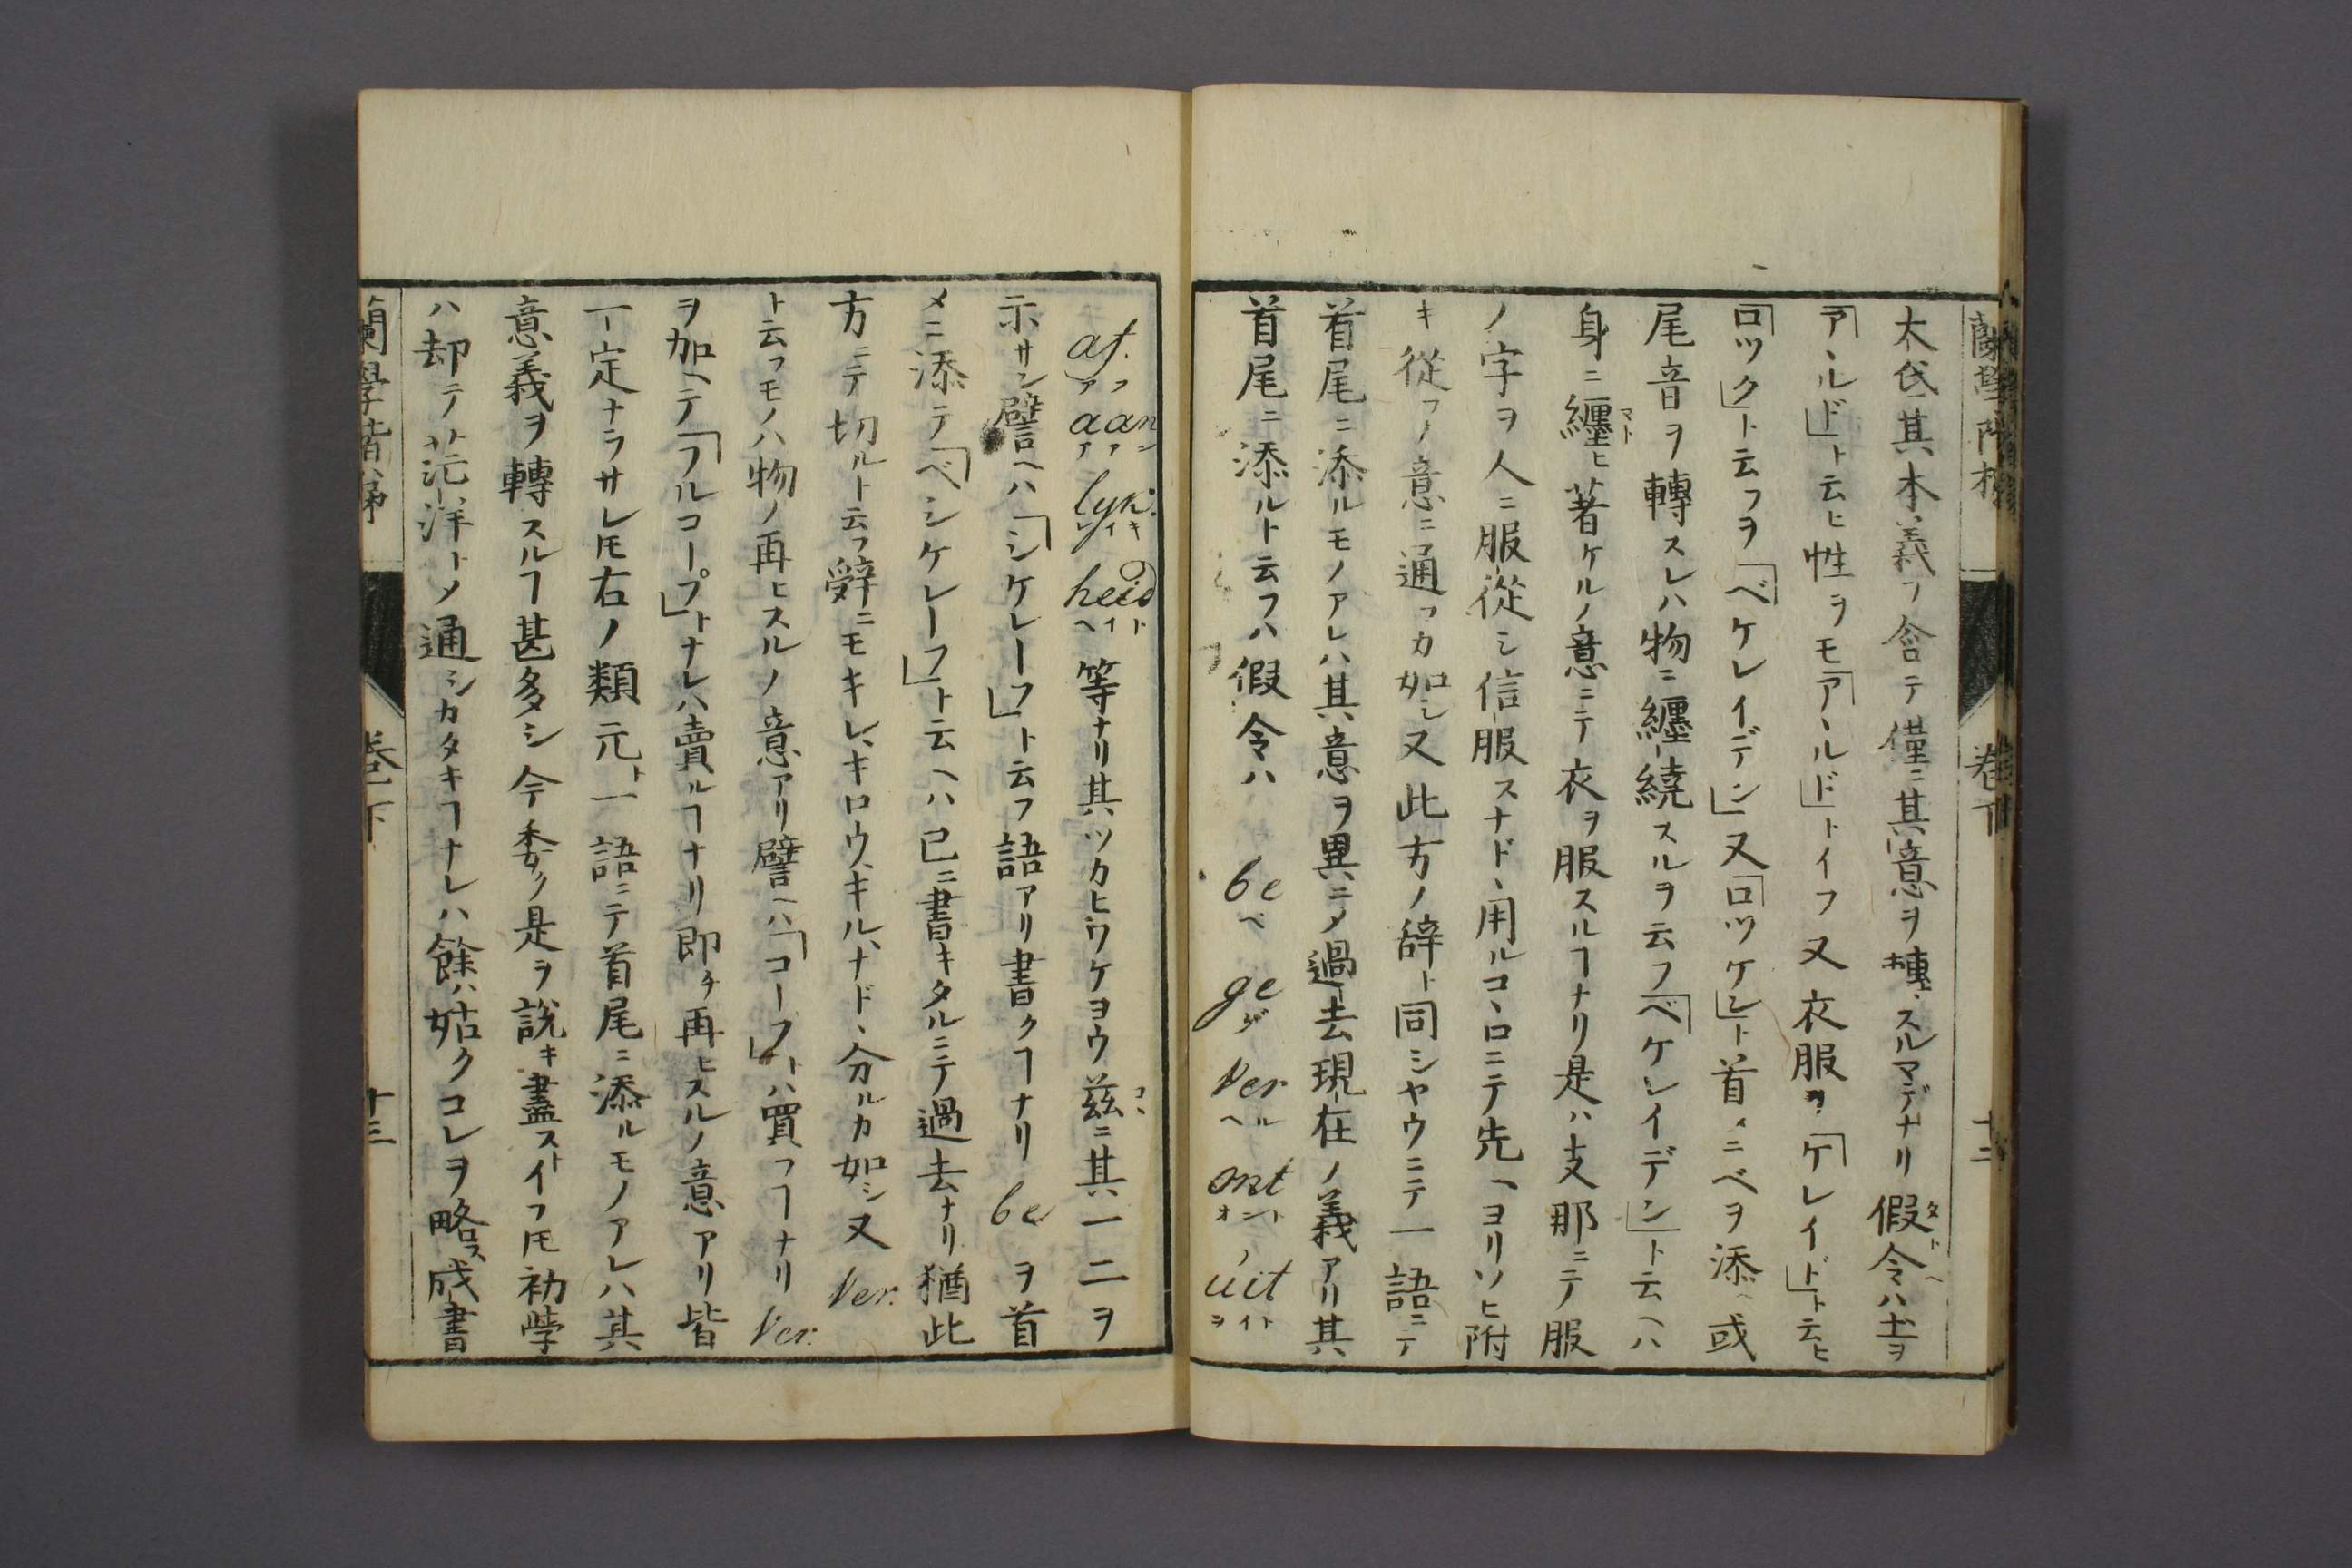 大氐其本義ヲ含テ僅ニ其意ヲ轉スルマデナリ假令ハ土ヲ
「アヽルド」ト云ヒ性ヲモ「アヽルド」トイフ又衣服ヲ「ケレイド」ト云ヒ
「ロツク」ト云フヲ「ベケレイデン」又「ロツケレ」ト首メニベヲ添ヘ或
尾音ヲ轉スレハ物ニ纏繞スルヲ云フ「ベケレイデン」ト云ヘハ
身ニ纏ヒ著ケルノ意ニテ衣ヲ服スルヿナリ是ハ支那ニテ服
ノ字ヲ人ニ服從シ信服スナドヽ用ルコヽロニテ先ヘヨリソヒ附
キ從フノ意ニ通フカ如シ又此方ノ辞ト同シヤウニテ一語ニテ
首尾ニ添ルモノアレハ其意ヲ異ニメ過去現在ノ義アリ其
首尾ニ添ルト云フハ假令ハ be ベ ge ゲ Ver ヘル ont オント uit ヲイト
af. アフ aan アアン lyk. レイキ heid ヘイト 等ナリ其ツカヒワケヨウ茲ニ其一二ヲ
示サン譬ヘハ「シケレーフ」ト云フ語アリ書クヿナリ be ヲ首
メニ添テ「ベシケレーフ」ト云ヘハ已ニ書キタルニテ過去ナリ猶此
方ニテ切ルト云フ辭ニモキレ、キロウ、キル、ナドヽ分ルカ如シ又 Ver.
ト云フモノハ物ノ再ヒスルノ意アリ譬ヘハ「コーフ」トハ買フヿナリ Ver.
ヲ加ヘテ「フルコープ」トナレハ賣ルヿナリ即チ再ヒスルノ意アリ皆
一定ナラサレ𪜈右ノ類元ト一語ニテ首尾ニ添ルモノアレハ其
意義ヲ轉スルヿ甚多シ今委ク是ヲ說キ盡ストイフ𪜈初學
ハ却テ茫洋トメ通シカタキヿナレハ餘ハ姑クコレヲ略ス成書
蘭學階梯 卷下 十三